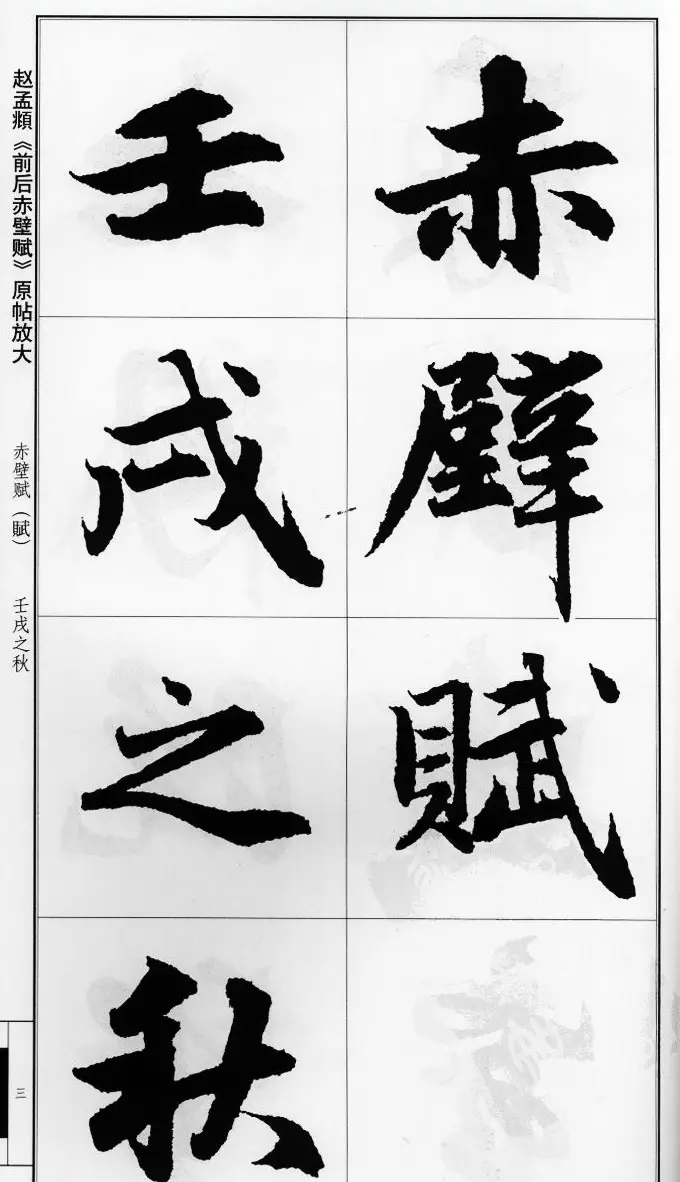 赤壁賦
壬戌之秋
赵孟頫《前后赤壁赋》原帖放大
赤壁赋（賦）
壬戌之秋
三